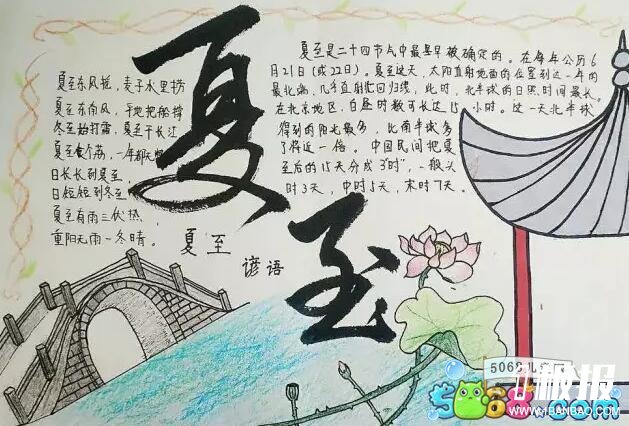 夏至
夏至东风摇，麦子水里捞
夏至东南风，平地把船撑
冬至始打霜，夏至干长江
夏至食个荔，一年都无
日长长到夏至
日短短到冬至
夏至有雨三伏热，
重阳无雨一冬晴。
夏至
谚语
夏至是二十四节气中最早被确定的。在每年公历6
月21日(或22日)。夏至这天，太阳直射地面的位置到达一年的
最北端，几乎直射北回归线，此时，北半球的日照时间最长。
在北京地区，白昼时数可长达15 小时。这一天北半球
得到的阳光最多，比南半球多
了将近一倍。中国民间把夏
至后的15天分成3"时"，一般头
时3天，中时5天，末时7天。
5068儿
1板报
5068.com
WWW.1BANBAO.COM